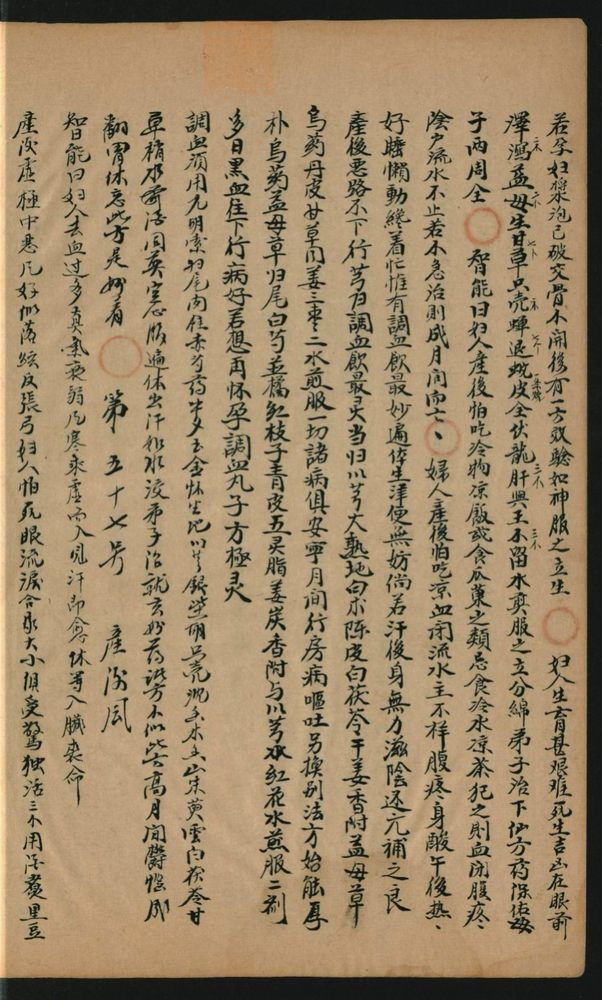 若孕妇漿泡已破交骨不開後有一方效驗如神服之立生 〇 妇人生育甚艰难死生吉凶在眼前
澤瀉益母生甘草只壳蝉退蛇皮全伏龍肝與王不留水煎服之立分綿弟子治下仙方药保佑母
子两周全 〇 智能曰妇人產後怕吃冷物凉飯或食瓜菓之類忌食冷水凉茶犯之則血闭腹疼
陰户流水不止若不急治則成月间而亡 〇 婦人產後怕吃凉血闭流水主不祥腹疼身酸午後热
好睡懶動終着忙惟有調血飲最妙遍体生津使無妨倘若汗後身無力滋陰还元補之良
產後悪路不下行芎归調血飲最灵当归川芎大熟地白术陈皮白茯苓干姜香附益母草
烏药丹皮甘草同姜三枣二水煎服一切諸病俱安寧月间行房病嘔吐另换别法方始能厚
朴烏药益母草归尾白芍並橘红枝子青皮五灵脂姜炭香附与川芎水红花水煎服二剂
多日黑血住下行病好若想再怀孕調血丸子方極灵
調血須用元明索归尾肉桂赤芍药 生地川芎银柴胡只壳 山朱萸雲白茯苓甘
草稍水 服遍体出汗似水 弟子治就玄妙药 高月间
翻胃休忘此方是妙着 〇 第五十七号 產後风
智能曰妇人去血过多真氣衰弱凡寒乘虚而入見汗即愈休等入臟丧命
產後虚極中悪风好似落弦反張弓妇人怕死眼流淚合家大小俱受驚独活三 用酒 黑豆